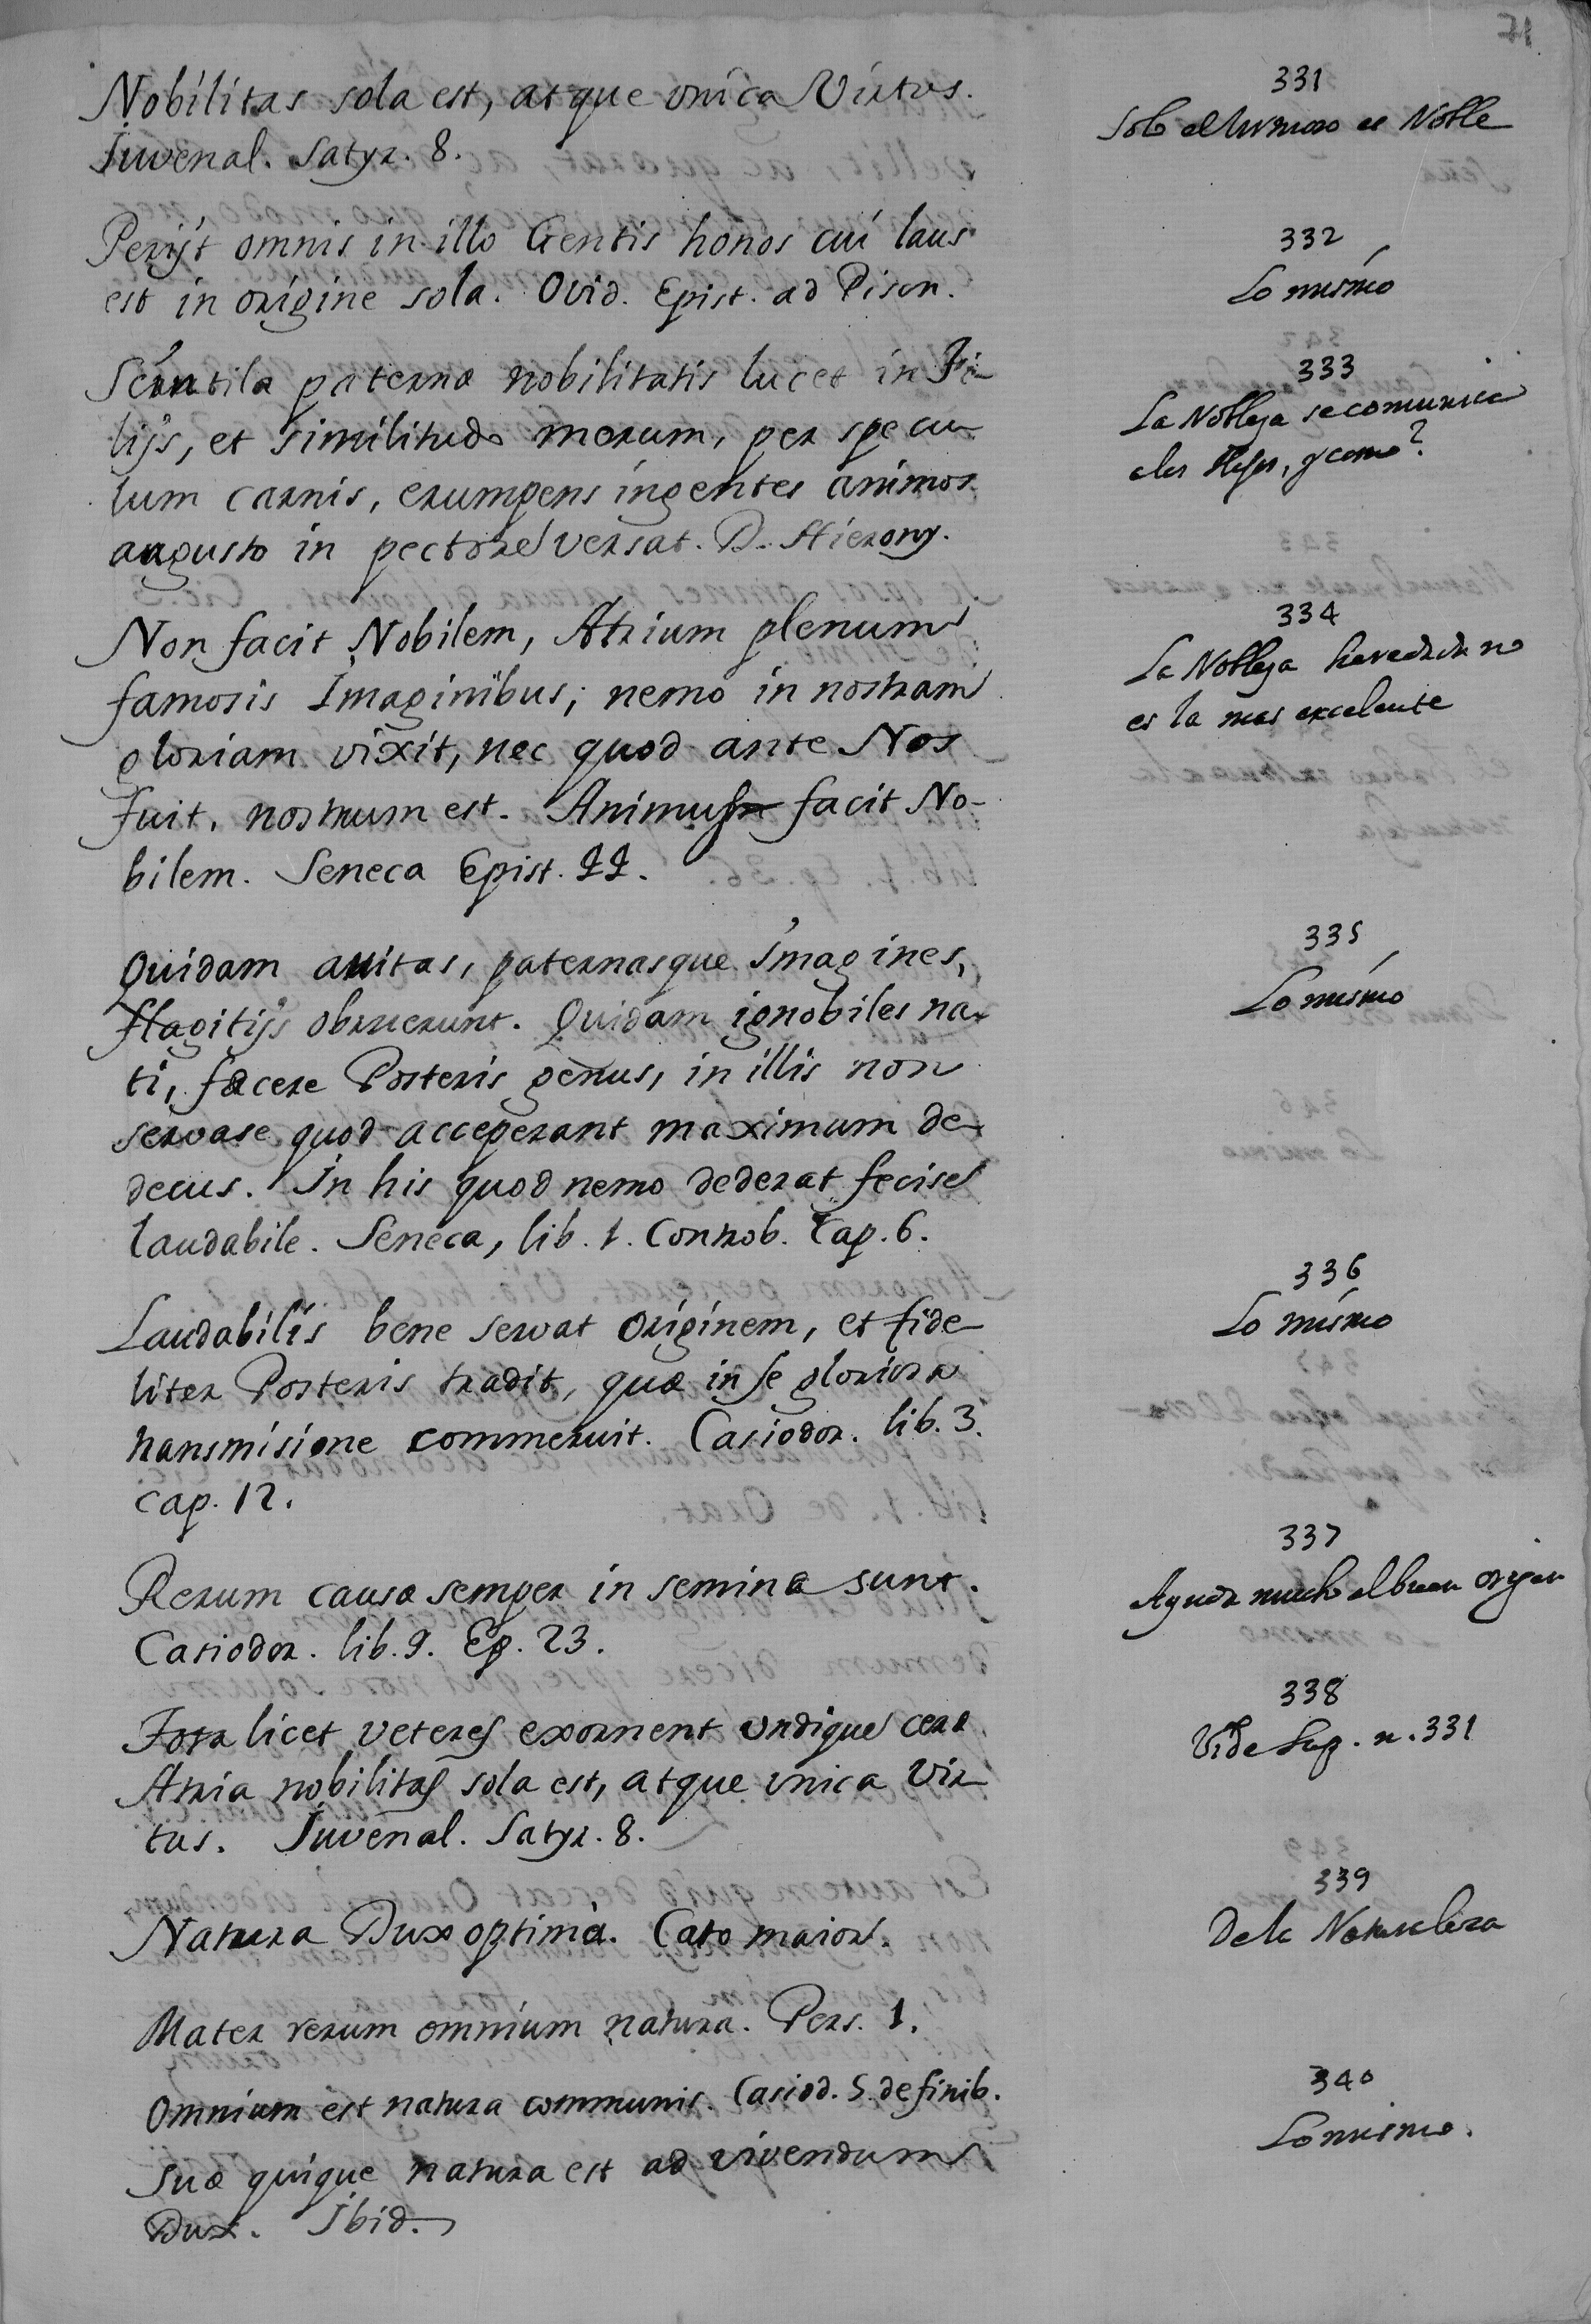 71
Nobilitas sola est, atque vnica Virtus.
Juvenal. Satyr. 8.
331
Solo el virtuoso es Noble
Perijt omnis in illo Gentis honos cui laus
est in origine sola. Ovid. Epist. ad Pison.
332
Lo mismo
Scintila paternæ nobilitatis lucet in Fi-
lijs, et similitudo morum, per specu-
lum carnis, erumpens ingentes animos
angusto in pectore versat. D. Hierony.
333
La Nobleza se comunica
a los Hijos, y como?
Non facit Nobilem, Atrium plenum
famosis Imaginibus; nemo in nostram
gloriam vixit, nec quod ante Nos
fuit, nostrum est. Animus facit No-
bilem. Seneca Epist. 44.
334
La Nobleza heredada no
es la mas excelente
Quidam auitas, paternasque Imagines,
flagitijs obruerunt. Quidam ignobiles na-
ti, facere Posteris genus, in illis non
servase quod acceperant maximum de-
decus. In his quod nemo dederat fecise
laudabile. Seneca, lib. 1. Controb. Cap. 6.
335
Lo mismo
Laudabilis bene servat originem, et fide-
liter Posteris tradit, quæ in se gloriosa
transmisione commeruit. Casiodor. lib. 3.
cap. 12.
336
Lo mismo
Rerum causæ semper in semina sunt.
Casiodor. lib. 9. Ep. 23.
337
Ayuda mucho el buen origen
Tota licet veteres exornent vndique ceræ
Atria nobilitas sola est, atque vnica Vir-
tus. Juvenal. Satyr. 8.
338
Vide Sup. n. 331
Natura Dux optima. Cato maior.
339
De la Naturaleza
Mater rerum omnium natura. Pers. 1.
Omnium est natura communis. Casiod. 5. de finib.
Suæ quique natura est ad vivendum
Dux. Ibid.
340
Lo mismo.